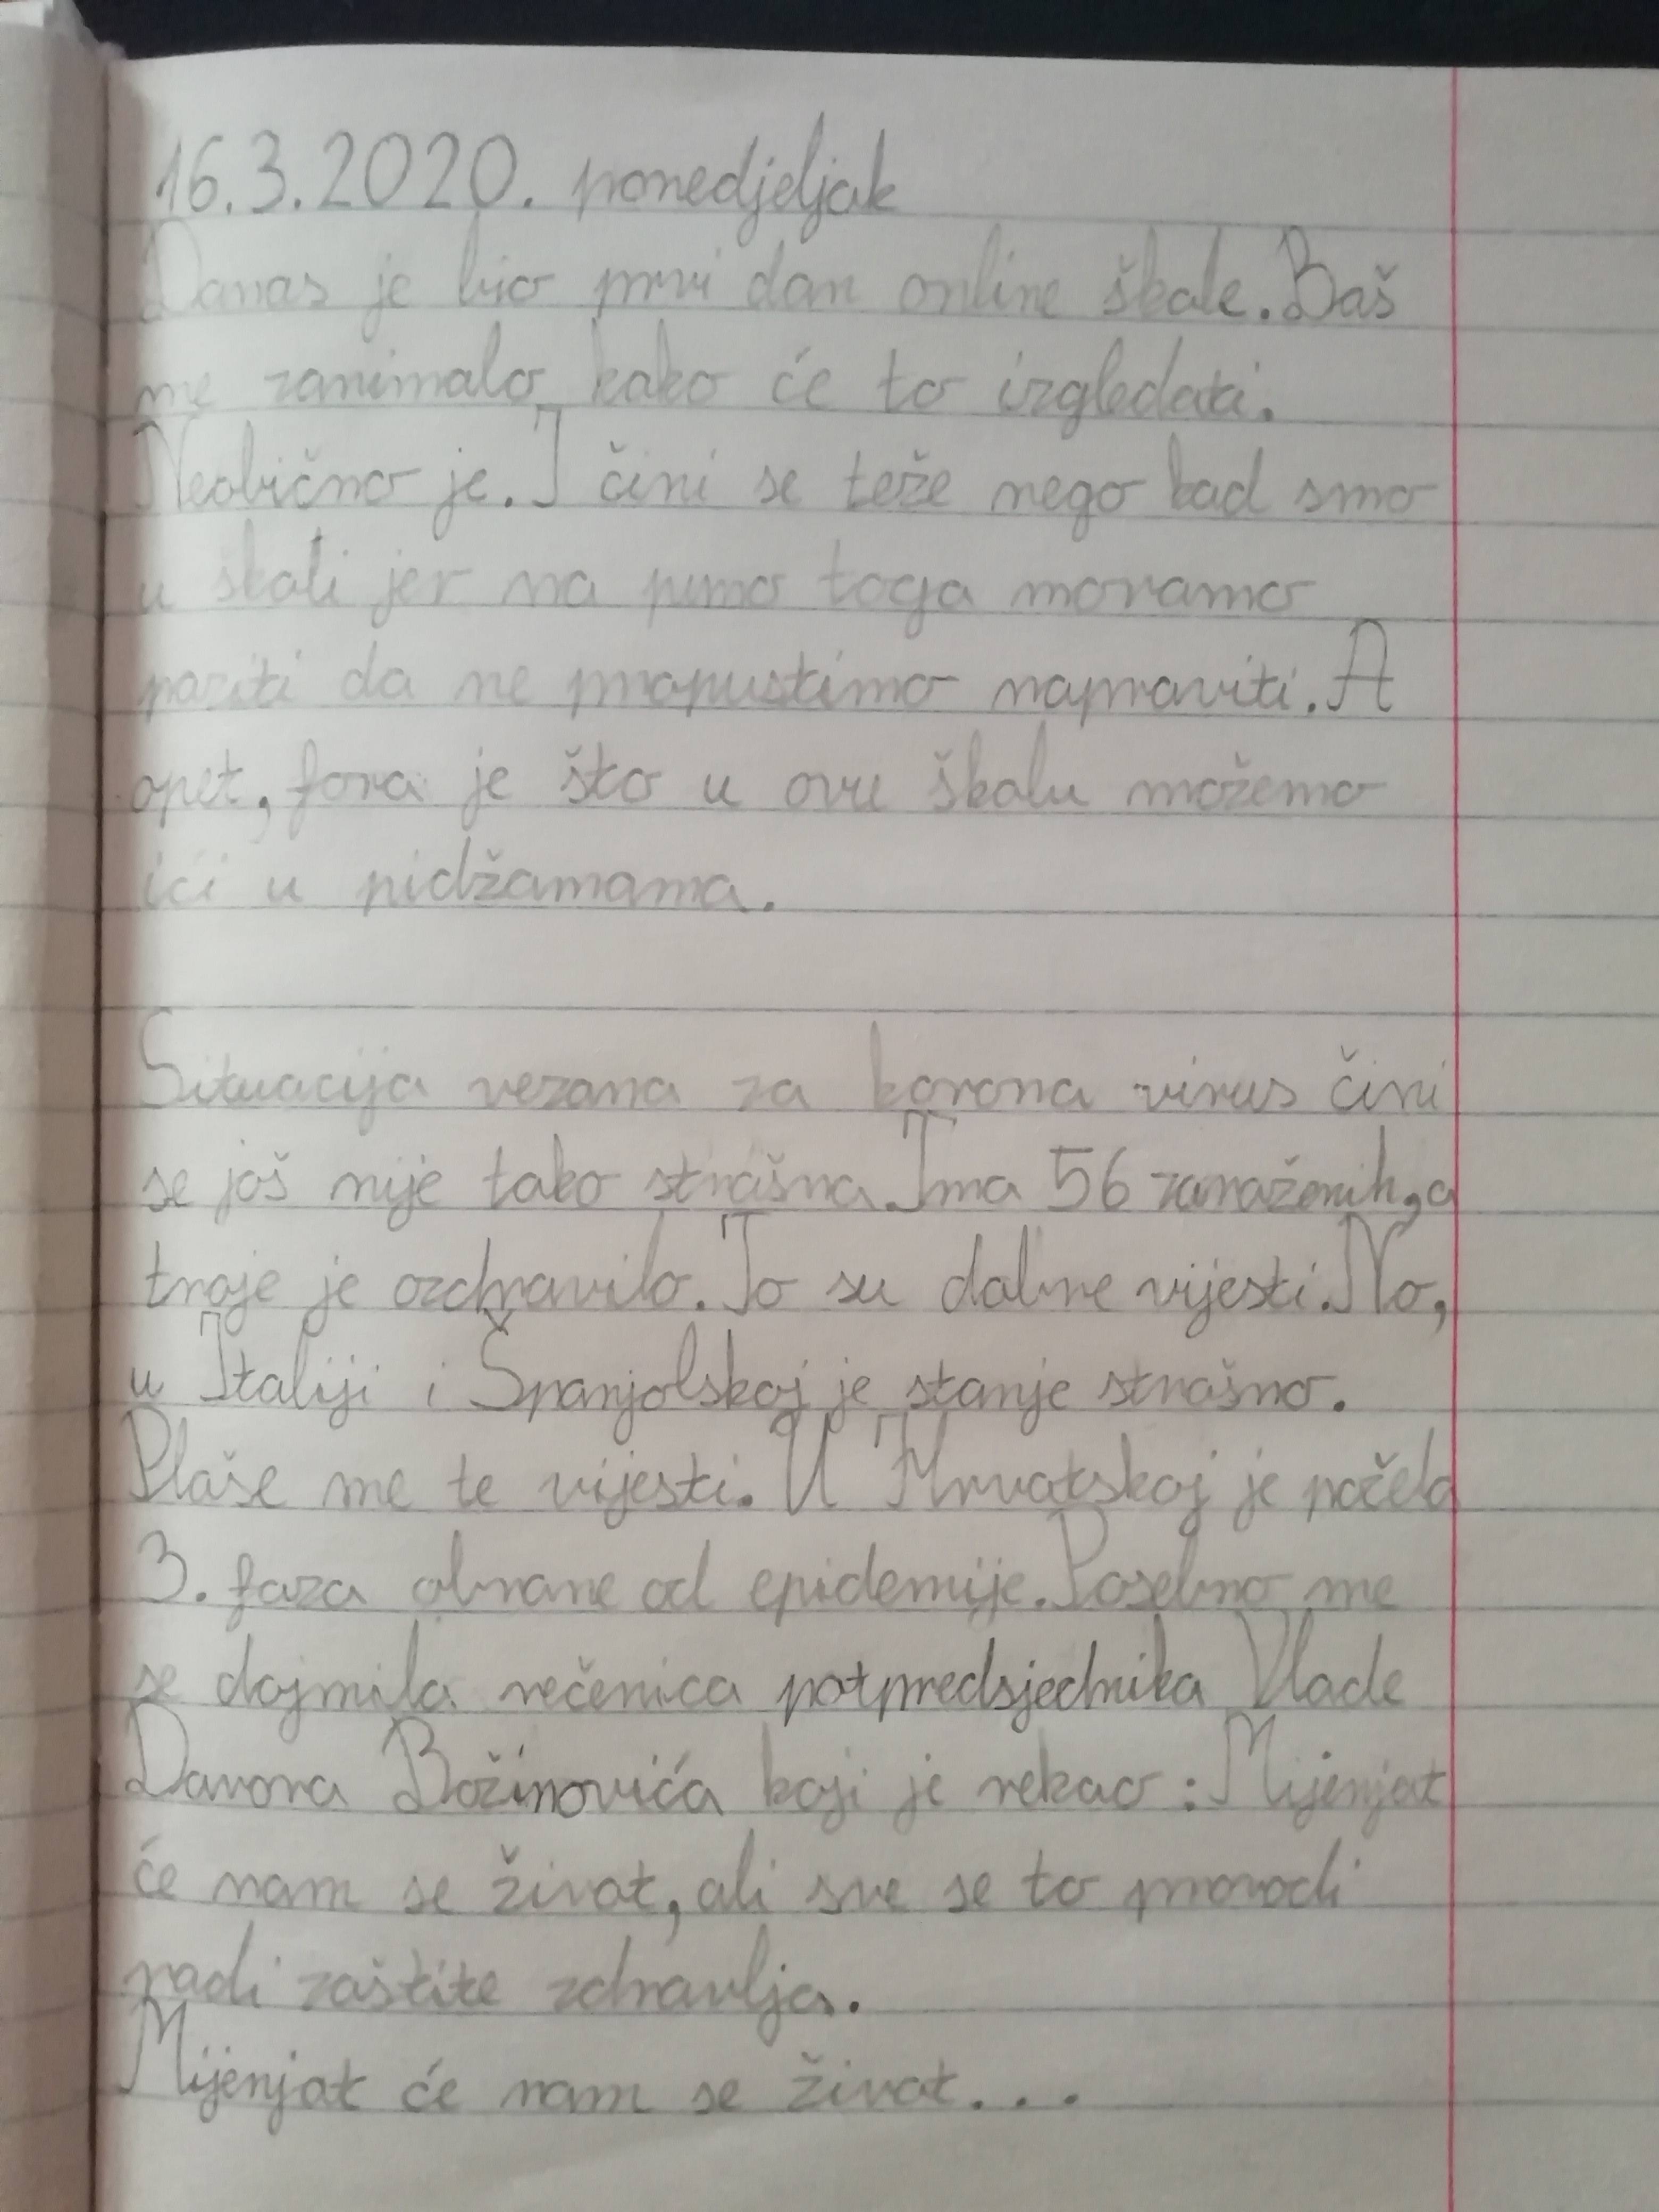 16.3.2020. ponedjeljak
Danas je bio prvi dan online škole. Baš
me zanimalo kako će to izgledati.
Neobično je. I čini se teže nego kad smo
u školi jer na puno toga moramo
paziti da ne propustimo napraviti. A
opet, fora je što u ovu školu možemo
ići u pidžamama.
Situacija vezana za korona virus čini
se još nije tako strašna. Ima 56 zaraženih, a
troje je ozdravilo. To su dobre vijesti. No,
u Italiji i Španjolskoj je stanje strašno.
Plaše me te vijesti. U Hrvatskoj je počela
3. faza obrane od epidemije. Posebno me
se dojmila rečenica potpredsjednika Vlade
Davora Božinovića koji je rekao: Mijenjat
će nam se život, ali sve se to provodi
radi zaštite zdravlja.
Mijenjat će nam se život...